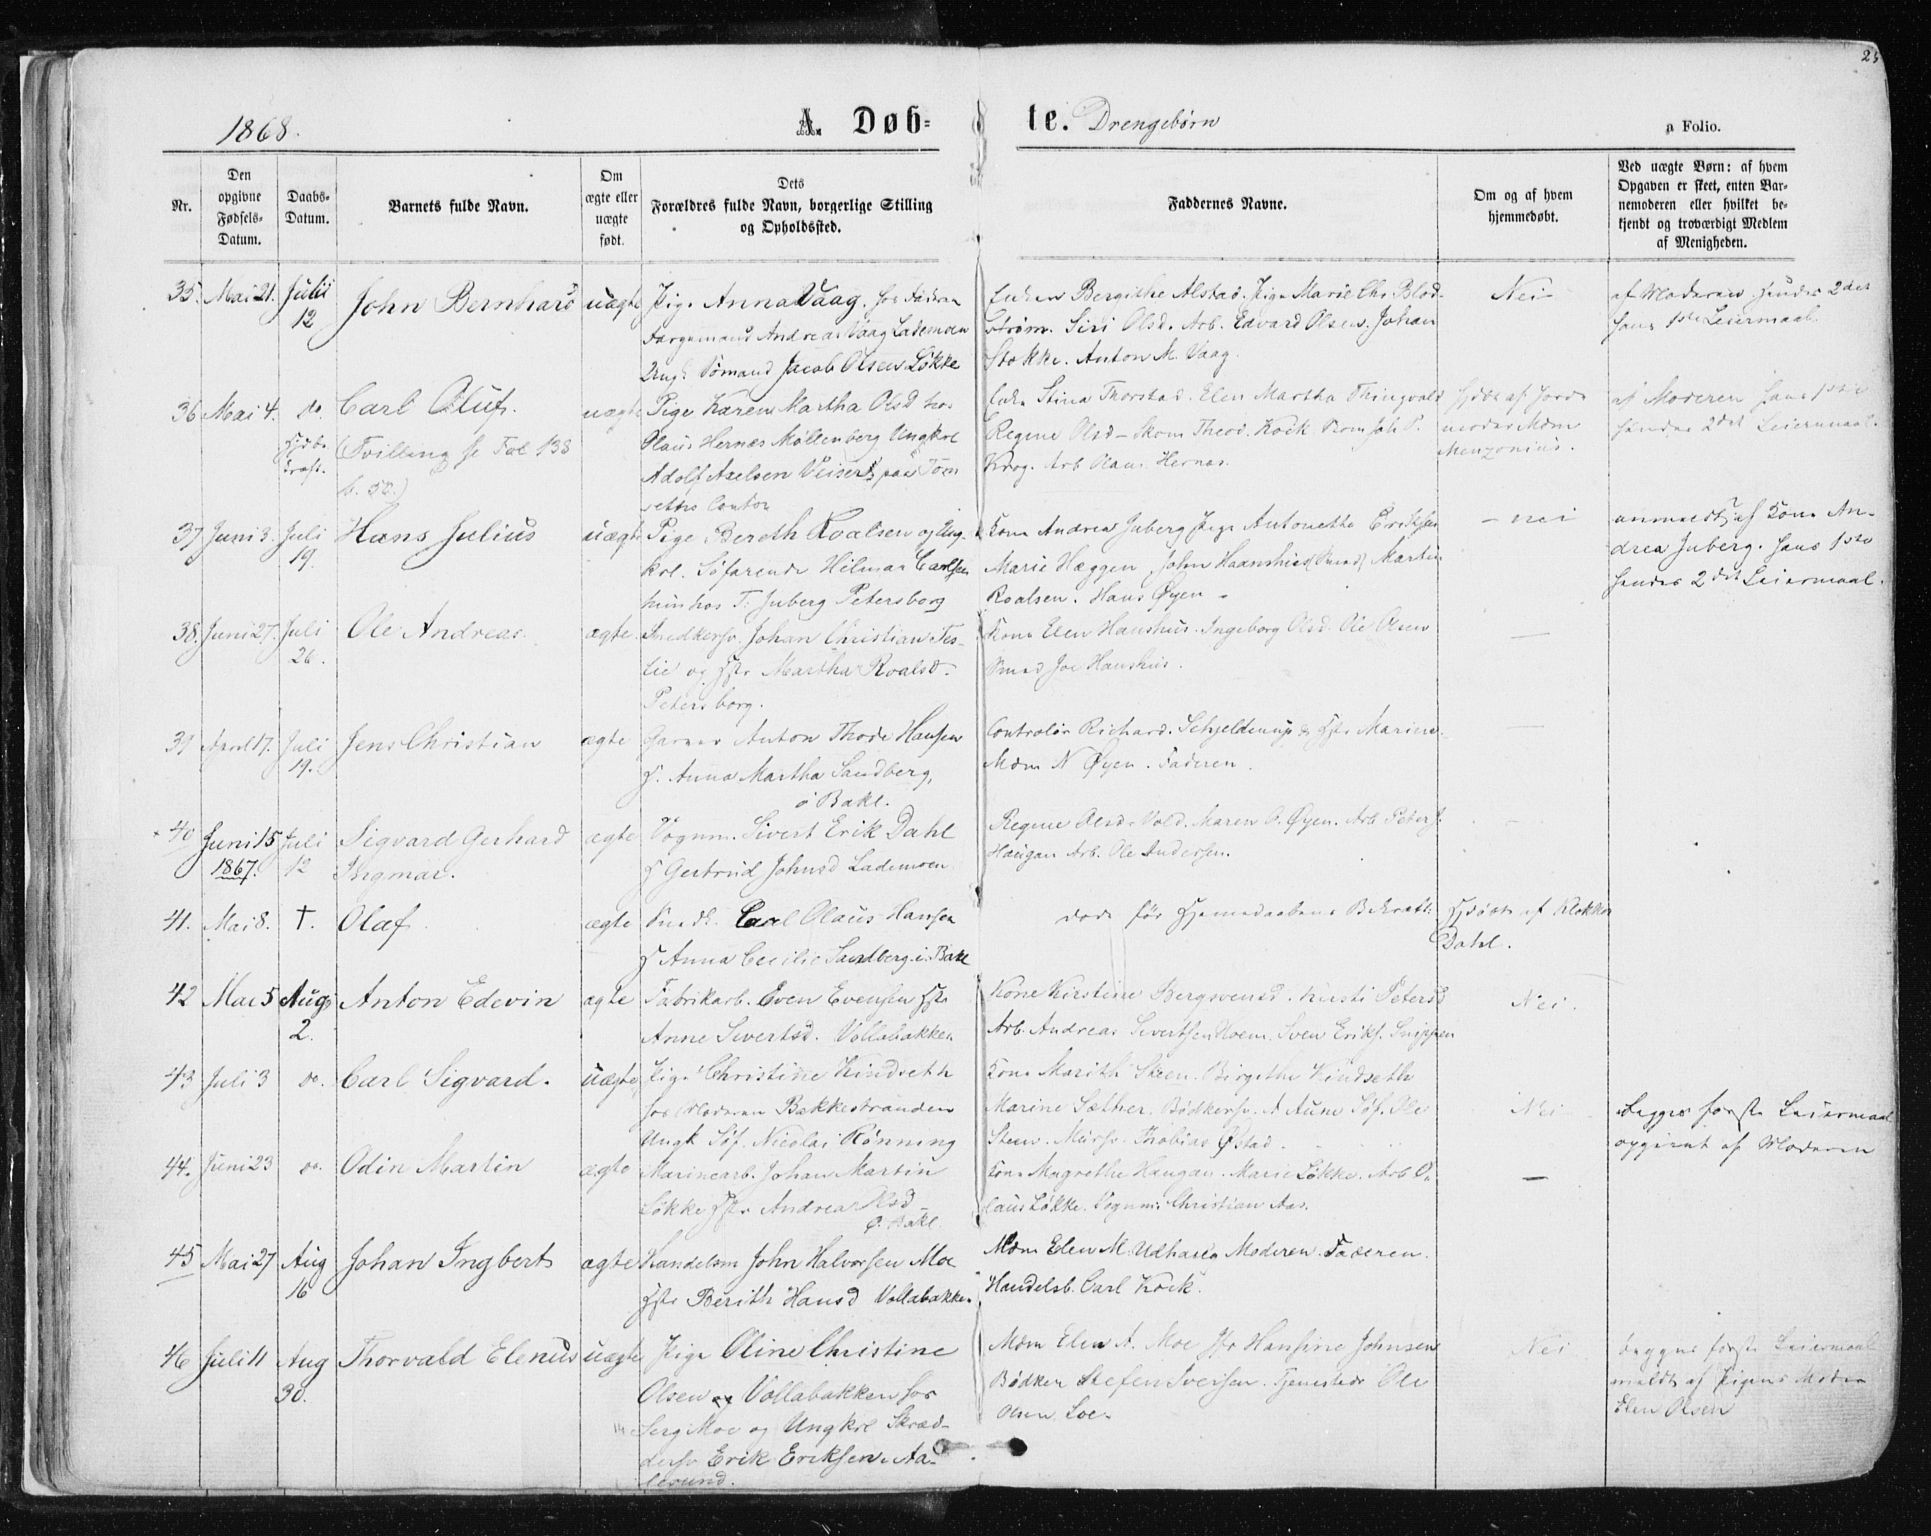 25
1868.
A. Døb=
te. Drengebørn
a Folio.
Nr.
Den opgivne Fødsels-Datum.
Daabs-Datum.
Barnets fulde Navn.
Om ægte eller uægte født.
Dets Forældres fulde Navn, borgerlige Stilling og Opholdssted.
Faddernes Navne.
Om og af hvem hjemmedøbt.
Ved uægte Børn: af hvem Opgaven er skeet, enten Barnemoderen eller hvilket bekjendt og troværdigt Medlem af Menigheden.
35. Mai 21. Julii John Bernhard uægte Pige Anna Vaag. hos Faderen
12 Andreas Vaag Lademoen
Ungk. Sømand Jacob Olsen Løkke
Bergithe Alstad. Pige Marie Chr. Blod-
strøm. Siri Olsd. Arb. Edvard Olsen. Johan
Stokke. Anton M. Vaag.
Nei
af Moderen hendes 2det
hans 1ste Leiermaal.
36 Mai 4. do. Carl Oluf. uægte Pige Karen Martha Olsd hos
(Tvilling se Fol 138
b. 50.)
Olaus Hernes Møllenberg Ungkrl
Adolf Axelsen Veisert paa Tom
settes Contor
Stina Thorstad. Elen Martha Thingvold
Regine Olsd - Skom Theod. Kock
Krog. Arb Olaus Hernes.
hjdbt af Jorde
moder Mdm
Menzonius.
af Moderen hans 1ste
hendes 2det Leiermaal.
37 Juni 3. Juli Hans Julius uægte Pige Bereth Roalsen og Ung-
19. krl. Søfarende Hilmar Carlsen
hun hos T. Juberg Petersborg
Kone Andrea Juberg Pige Antonette Eriksen
Marie Hæggen John Haanshus (Smed) Martin
Roalsen. Hans Øyen -
- nei
anmeldt af Kone An-
drea Juberg. hans 1ste
hendes 2det Leiermaal.
38. Juni 27. Juli Ole Andreas. ægte Snedkersv. Johan Christian Tes-
26. lie og Hstr Martha Roalsd.
Petersborg.
Kone Elen Hanshus. Ingeborg Olsd. Ole Olsen
Smed Joe Hanshus.
39 April 17. Juli Jens Christian ægte Garver Anton Thode Hansen
19. H. Anna Martha Sandberg,
ø Bakl.
Controlør Richard. Schjelderup & Hstr Marine.
Mdm N Øyen. Faderen.
40 Juni 15 Juli Sigvard Gerhard ægte Vognm. Sivert Erik Dahl
1867. 12 Ingmar. H Gertrud Johnsd Lademoen
Regine Olsd - Vold. Maren O. Øyen. Arb Peter J.
Haugan Arb. Ole Andersen.
41. Mai 8. †. Olaf. ægte Smedk. Carl Olaus Hansen
H Anna Cecilie Sandberg i. Bakl
døde før Hjemmedaabens Bekræft.
Hjdøbt af Klokker
Dahl.
42 Mai 5 Aug Anton Edevin ægte Fabrikarb. Even Evensen Hstr
2. Anne Sivertsd. Vollabakken
Kone Kirstine Bergsvensd. Kirsti Petersd
Arb. Andreas Sivertsen Hoem. Sven Eriks. Snippen
Nei.
43 Juli 3 do. Carl Sigvard. uægte Pige Christine Kindseth
hos Moderen Bakkestranden
Ungk Søf. Nicolai Rönning
Kone Marith Steen. Birgithe Kindseth
Marine Sæther. Bödkersv. A Aune Søf. Ole
Steen. Mursv. Thobias Østad.
Nei
begges første Leiermaal
opgivet af Moderen
44. Juni 23 do. Odin Martin ægte Marinearb. Johan Martin
Løkke Hstr Andrea Olsd
Ø. Bakl.
Kone Magrethe Haugan. Marie Løkke. Arb O-
laus Løkke. Vognm. Christian Aas.
45 Mai 27 Aug Johan Ingbert ægte Handelsm John Halvorsen Moe
16 Hstr Berith Hansd Vollabakken
Mdm Elen M. Udhaug Moderen. Faderen.
Handelsb. Carl Kock.
46 Juli 11 Aug Thorvald Elenus uægte Pige Oline Christine
30. Olsen Vollabakken hos
Serg Moe og Ungkrl Skræd-
dersv Erik Eriksen. Aa-
lesund.
Mdm Elen A. Moe Hansine Johnsen
Bödker Stefen Iversen. Tjenestedr Ole
Olsen Loe.
Nei
begges første Leiermaal
meldt af Pigens Moder
Elen Olsen